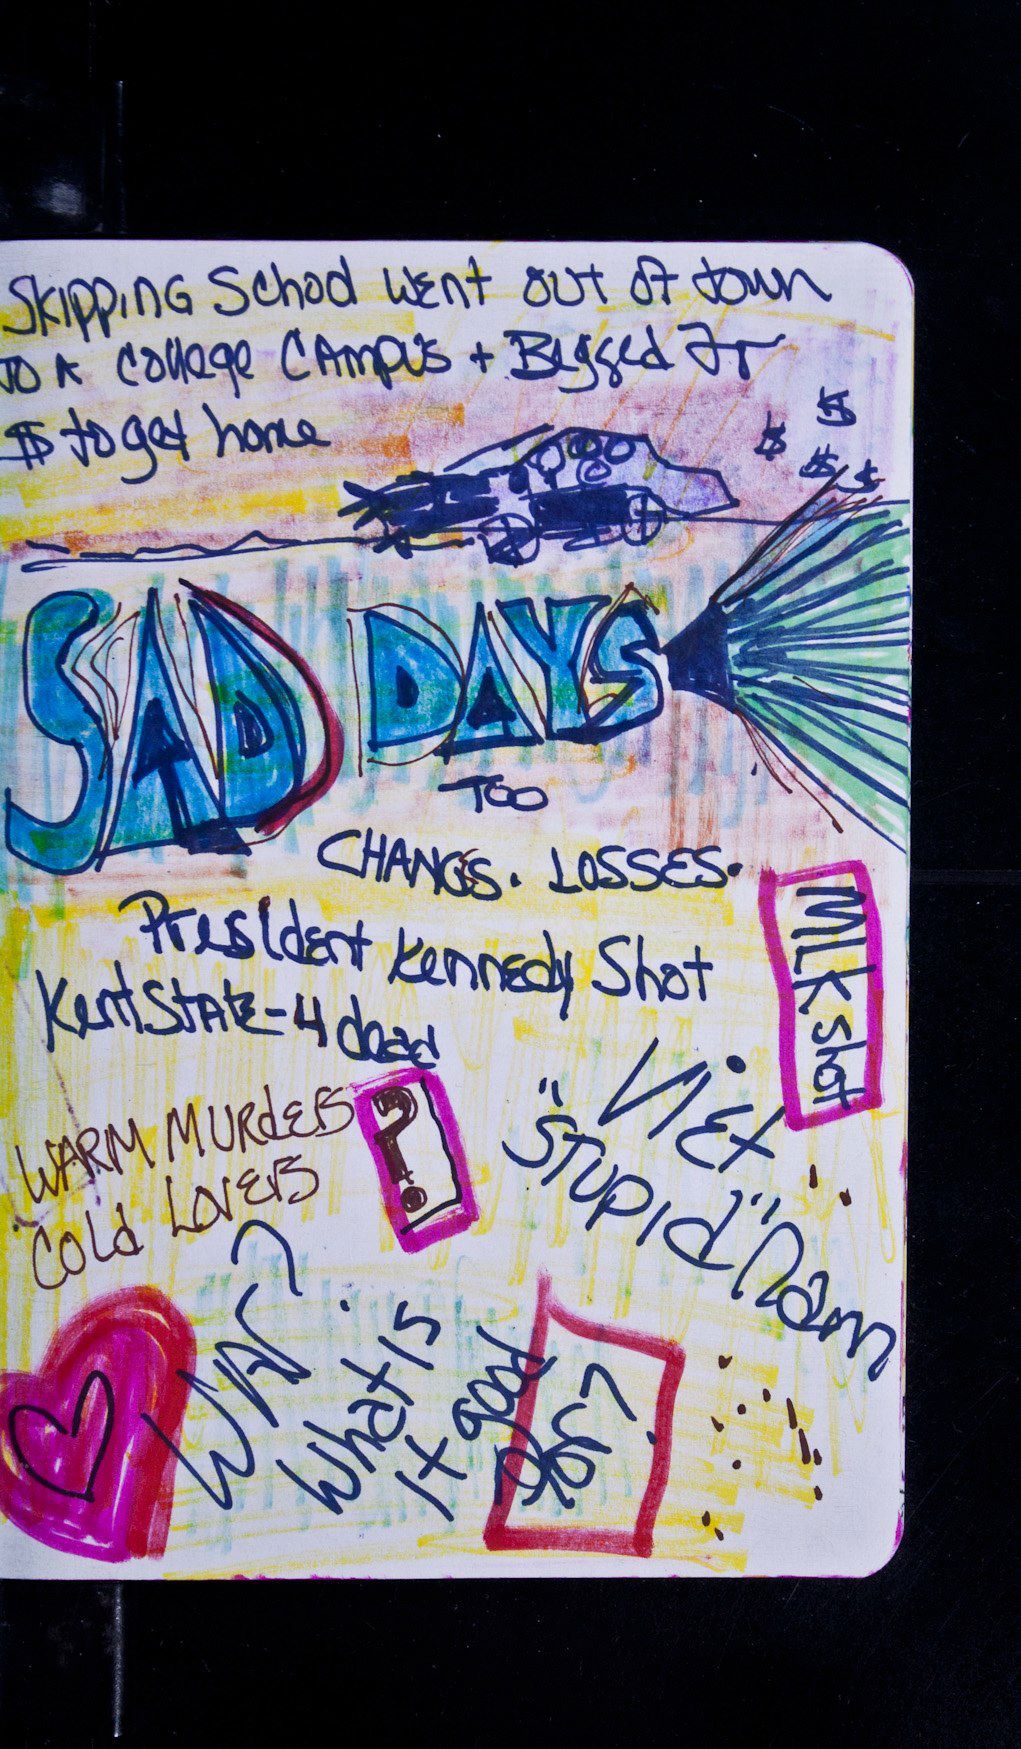 SKIPPING School WENT OUT OF town
TO A College CAMPUS + Begged For
$ to get home
$ $ $ $
SAD DAYS
TOO
CHANGS. LOSSES.
President Kennedy Shot
Kent STATE - 4 dead
MLK shot
WARM MURDERS
COLD LOVERS
?
VIET
"STUPID" Nam
WAR?
What is
it good
for?